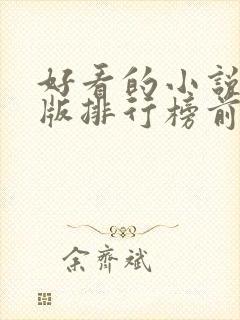 好看的小说
版排行榜前
余齐斌